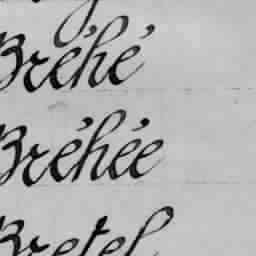 Bréhé
Bréhée
Bretel